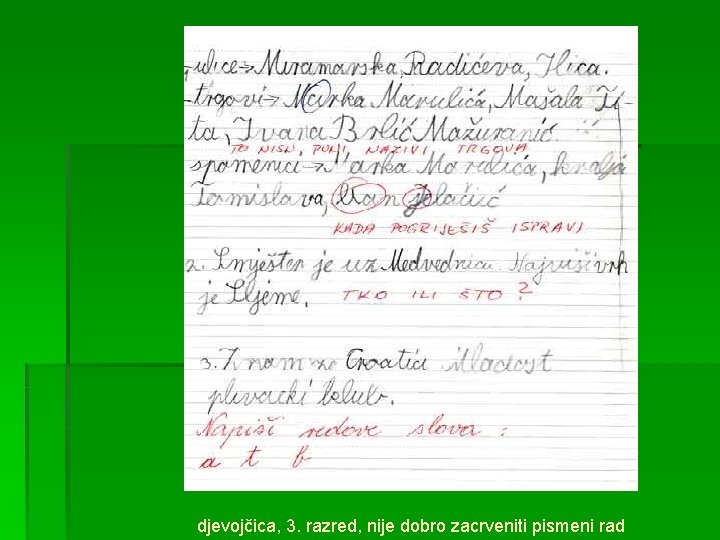 -ulice→Miramarska, Radićeva, Ilica.
-trgovi→Marka Marulića, Mašala Ti-
ta, Ivana Brlić Mažuranić.
TO NISU PUNI NAZIVI TRGOVA
spomenici→Marka Marulića, kralja
Tomislava, Ban Jelačić
KADA POGRIJEŠIŠ ISPRAVI
2. Smješten je uz Medvednicu. Najviši vrh
je Sljeme. TKO ILI ŠTO?
3. Znam za Croatiu Mladost
plivački klub.
Napiši redove slova:
a t b
djevojčica, 3. razred, nije dobro zacrveniti pismeni rad